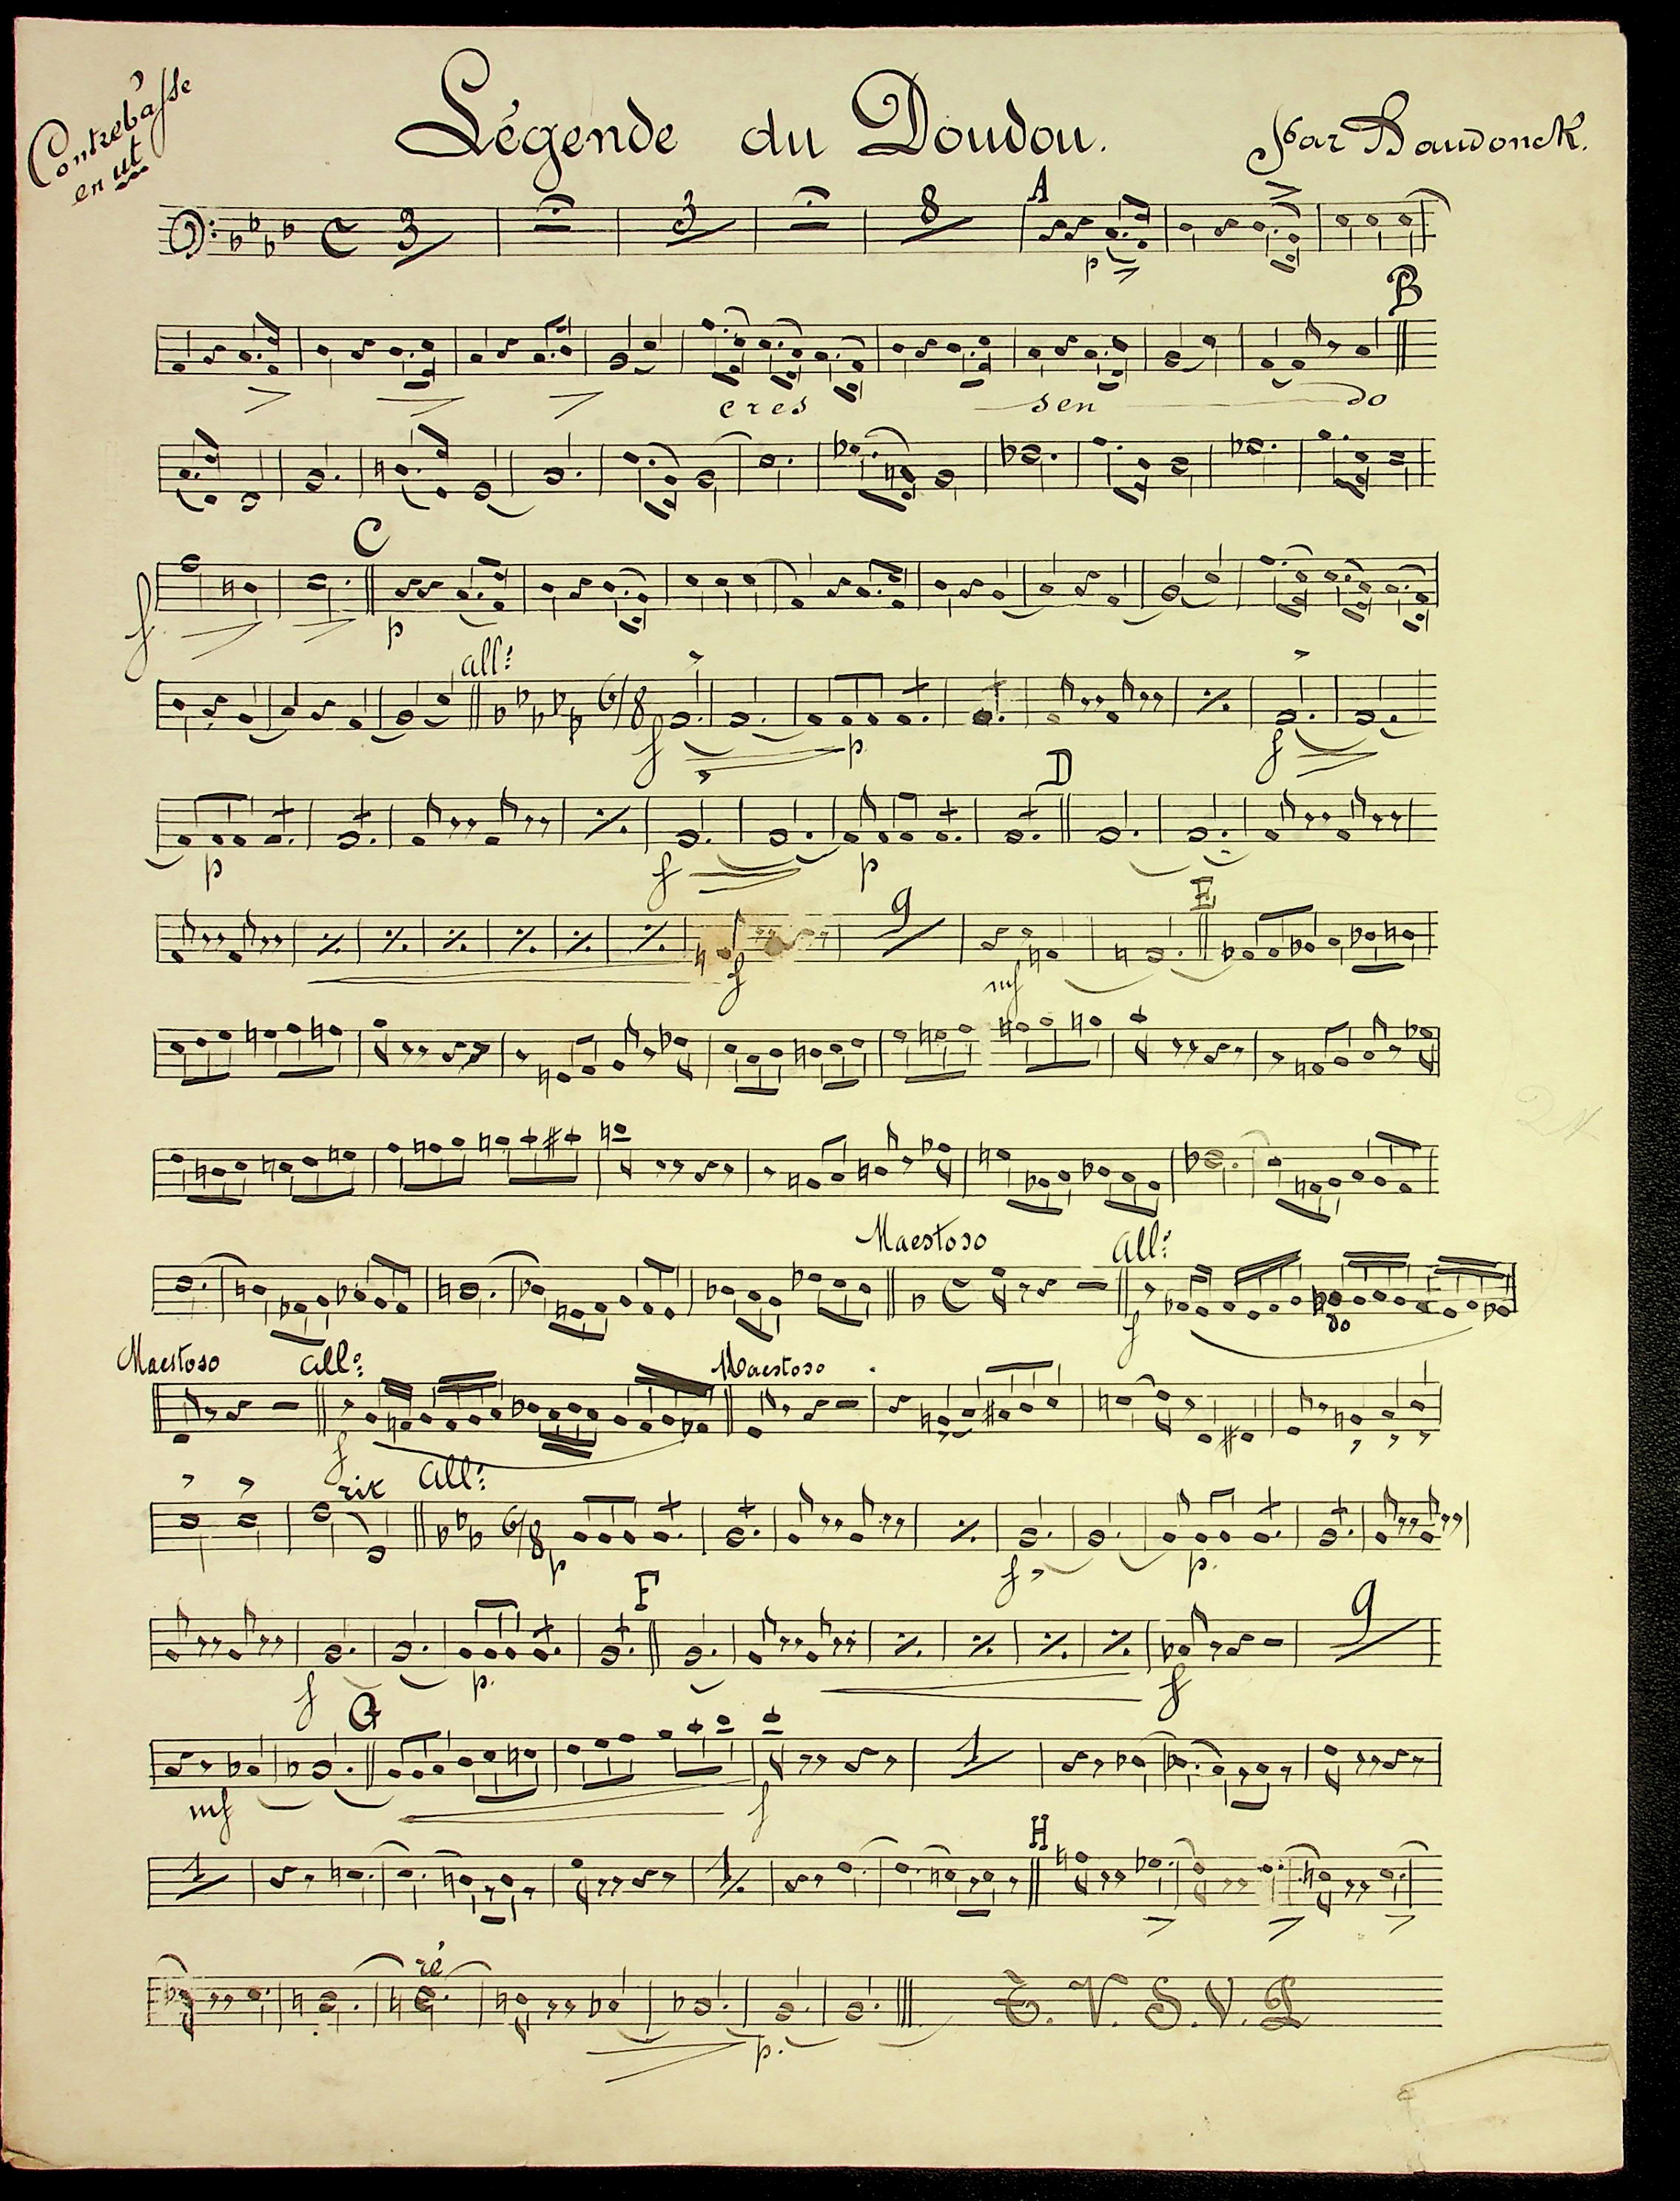 Contrebasse
en ut
Légende du Doudou.
Par Baudonck.
3
3
8
A
p
B
cres sen do
C
f
p
all:
6/8
f
p
f
D
p
f
p
E
f
9
mf
Maestoso all:
f
do
Maestoso all: Maestoso
f
rit all:
6/8
p
f
p.
F
f
p.
f
9
G
mf
f
1
H
1
1
ré
p.
T. V. S. V. P